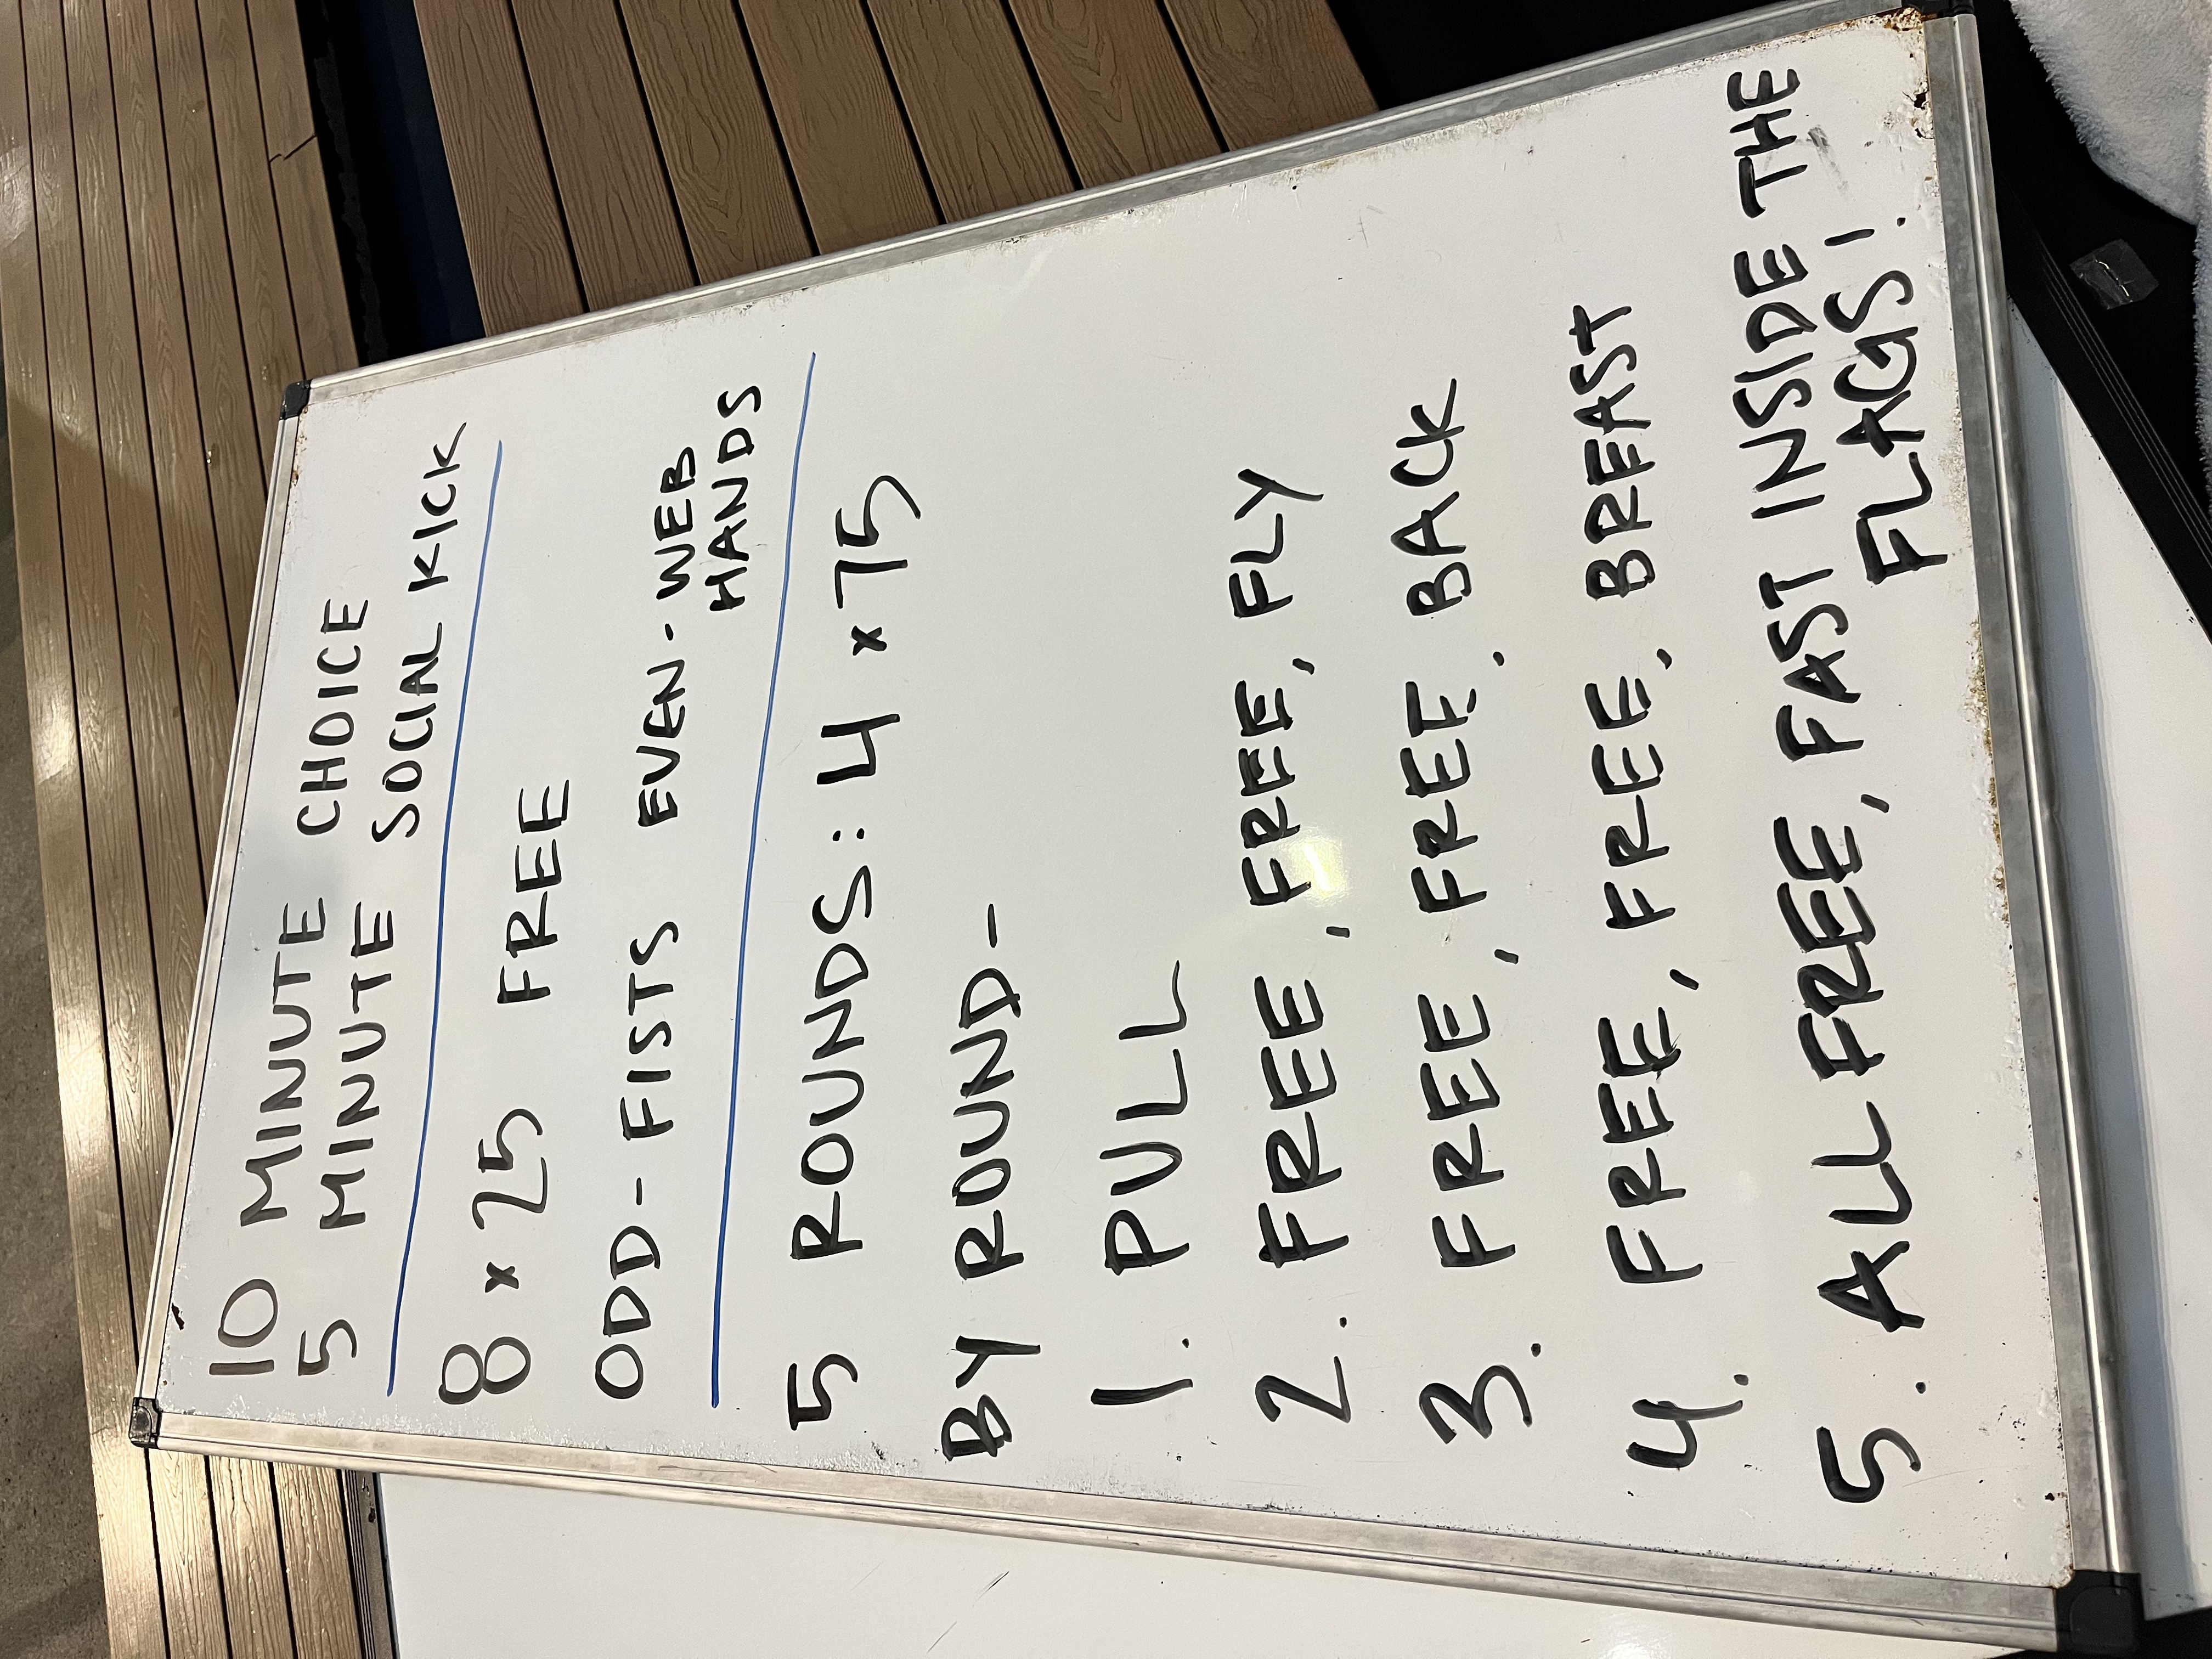 10 MINUTE CHOICE
5 MINUTE SOCIAL KICK
8 x 25 FREE
ODD- FISTS EVEN- WEB
HANDS
5 ROUNDS: 4 x 75
BY ROUND-
1. PULL
2. FREE, FREE, FLY
3. FREE, FREE, BACK
4. FREE, FREE, BREAST
5. ALL FREE, FAST INSIDE THE
FLAGS!